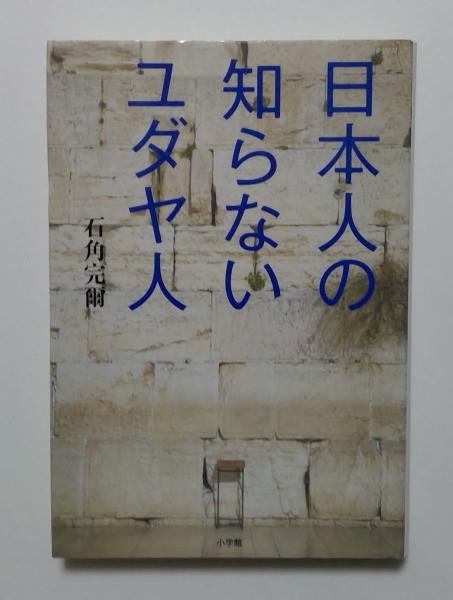 日本人の
知らない
ユダヤ人
石角完爾
小学館